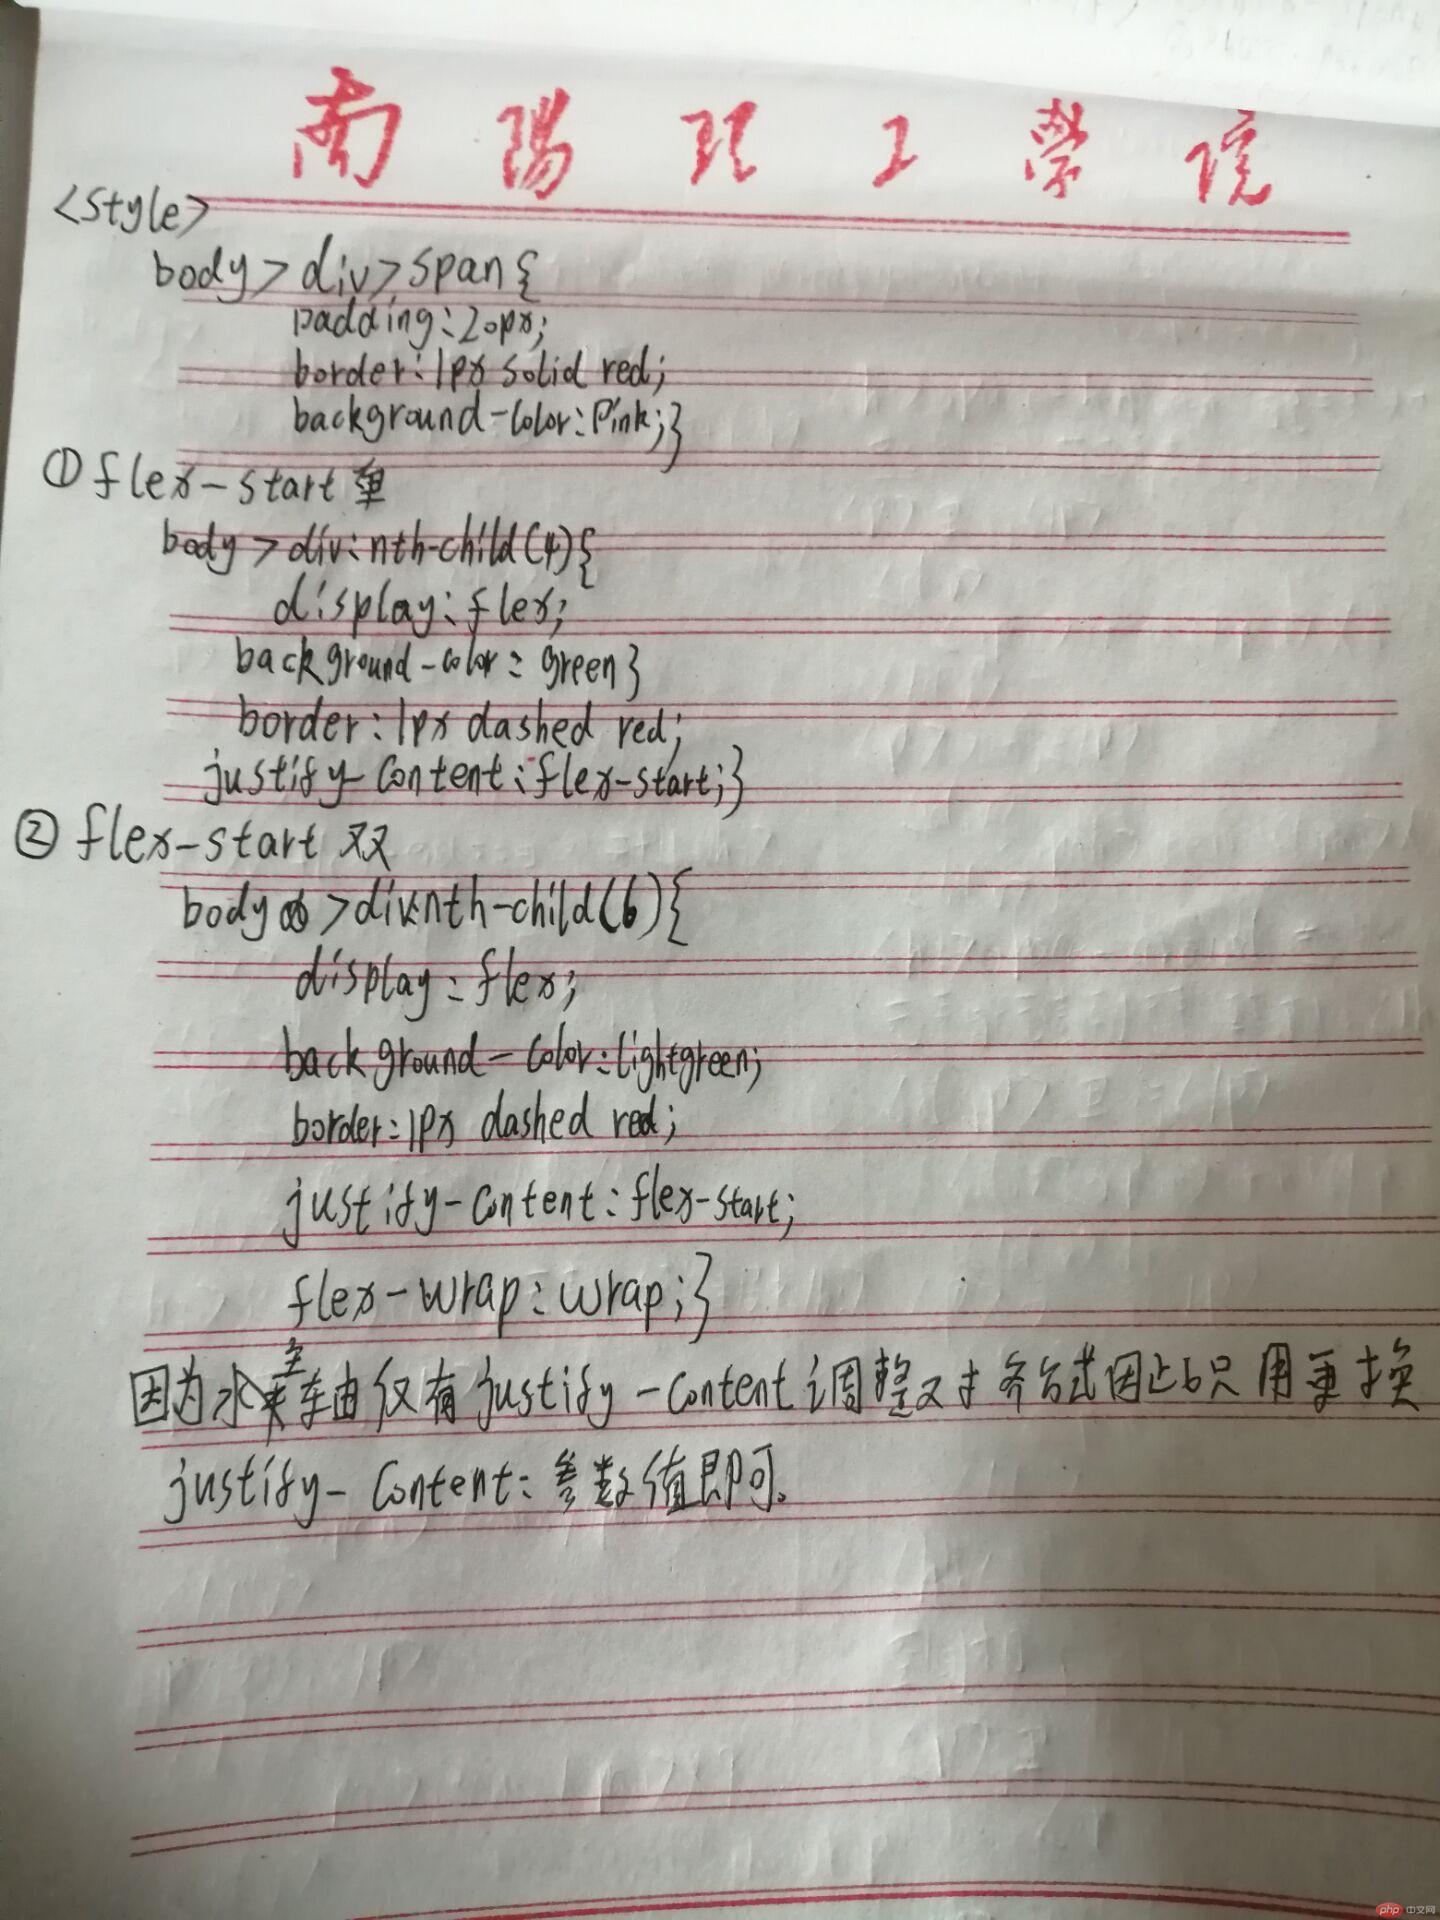 南陽理工學院
<style>
body>div>span{
padding:20px;
border:1px solid red;
background-color:Pink;}
①flex-start 单
body>div:nth-child(4){
display:flex;
background-color:green}
border:1px dashed red;
justify-content:flex-start;}
②flex-start 双
body>div:nth-child(6){
display:flex;
background-color:lightgreen;
border:1px dashed red;
justify-content:flex-start;
flex-wrap:wrap;}
因为主轴仅有justify-content调整对齐方式因此只用更换
justify-content:参数值即可。
php 中文网